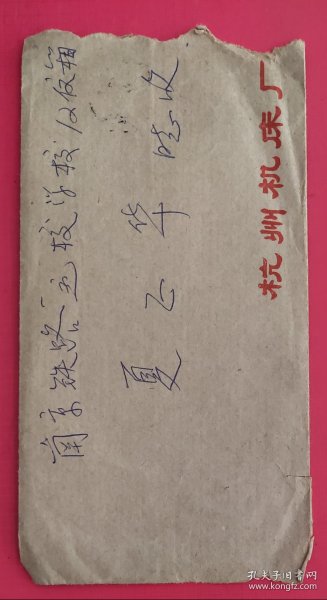 南京铁路运校学校12信箱
夏正华 收
杭州机床厂
孔夫子旧书网